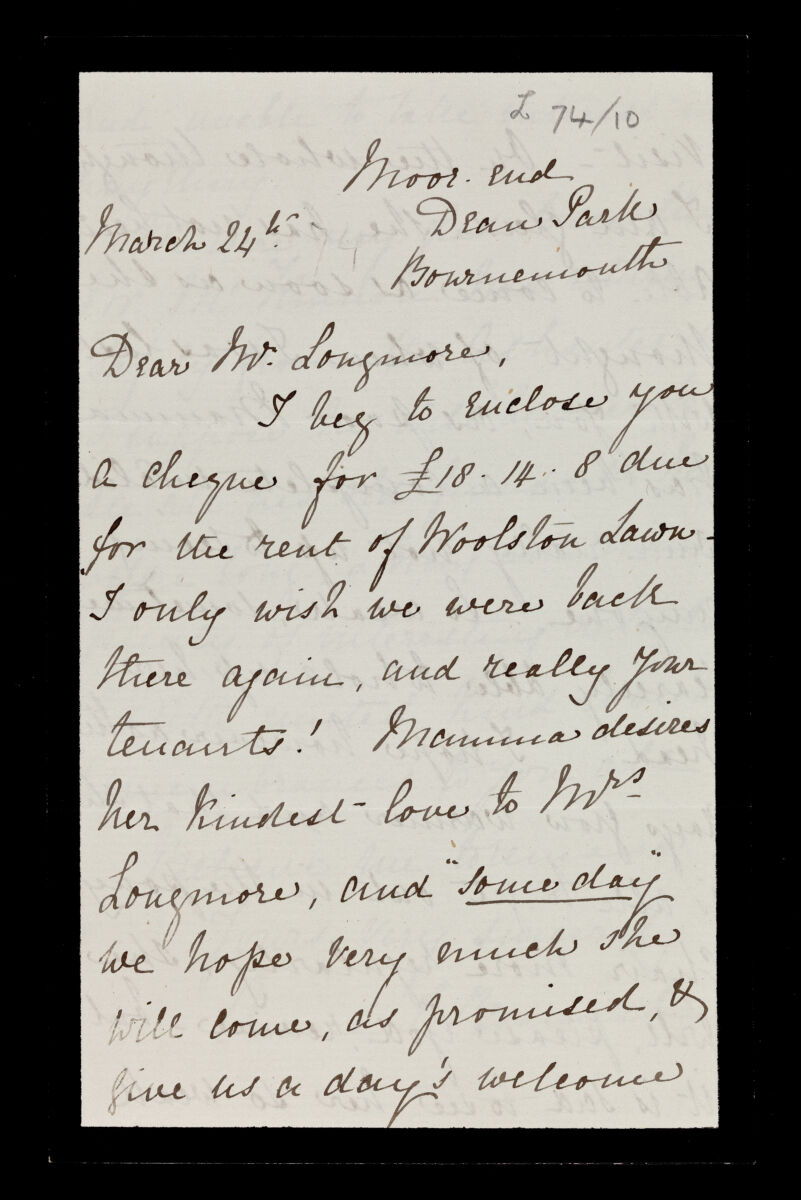 L 74/10
Moor-End
Dean Park
March 24th.
Bournemouth
Dear Mr. Longmore,
I beg to enclose you
a cheque for £18. 14.. 8 due
for the rent of Woolston Lawn -
I only wish we were back
there again, and really your
tenants! Mamma desires
her kindest love to Mrs
Longmore, and "some day"
we hope very much she
will come, as promised, &
give us a day's welcome